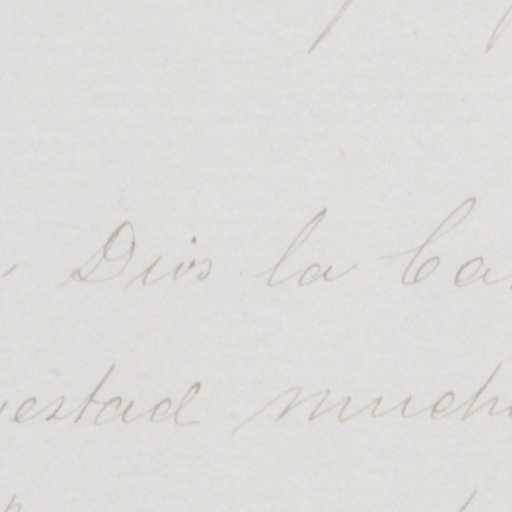 Dios la Ca
estad much